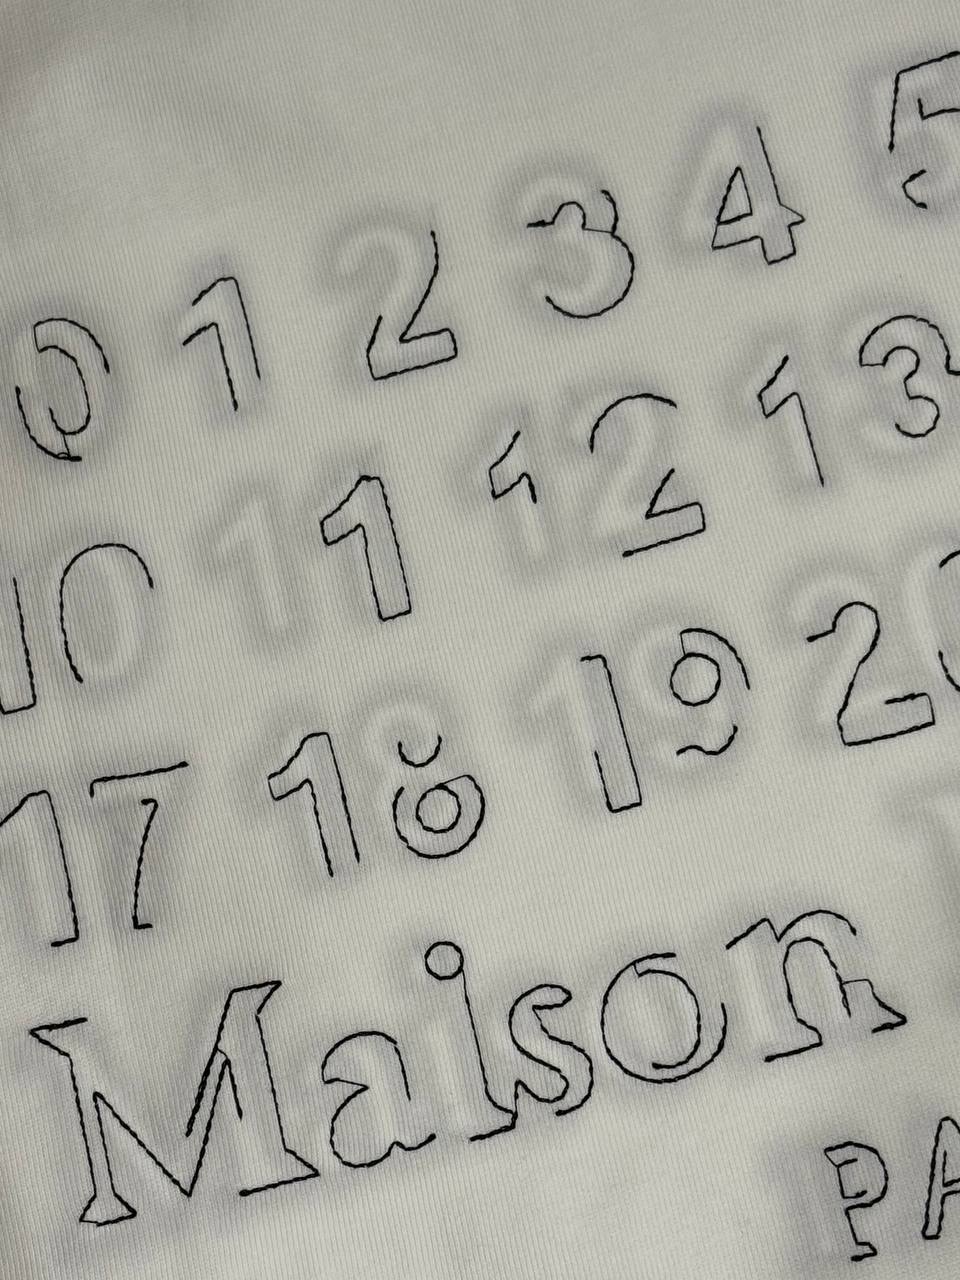 0 1 2 3 4 5
10 11 12 13
17 18 19 20
Maison
PA